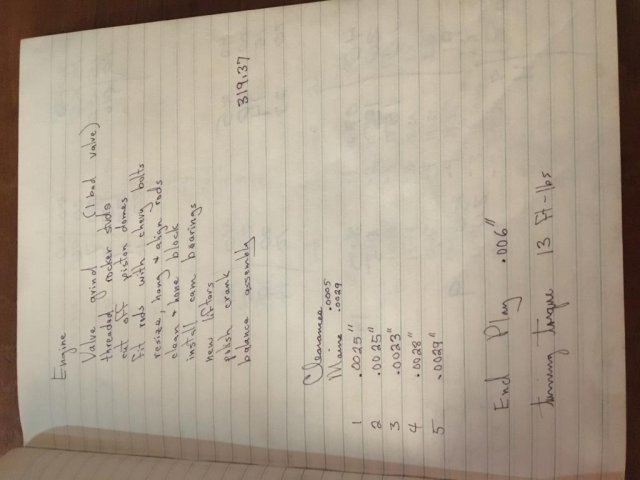 Engine
Valve grind (1 bad valve)
threaded rocker studs
cut off piston domes
fit rods with chevy bolts
resize, hang & align rods
clean & hone block
install cam bearings
new lifters
polish crank
balance assembly 319.37
Clearances
Mains .0005
.0029
1 .0025"
2 .0025"
3 .0023"
4 .0028"
5 .0029"
End Play .006"
turning torque 13 Ft-lbs